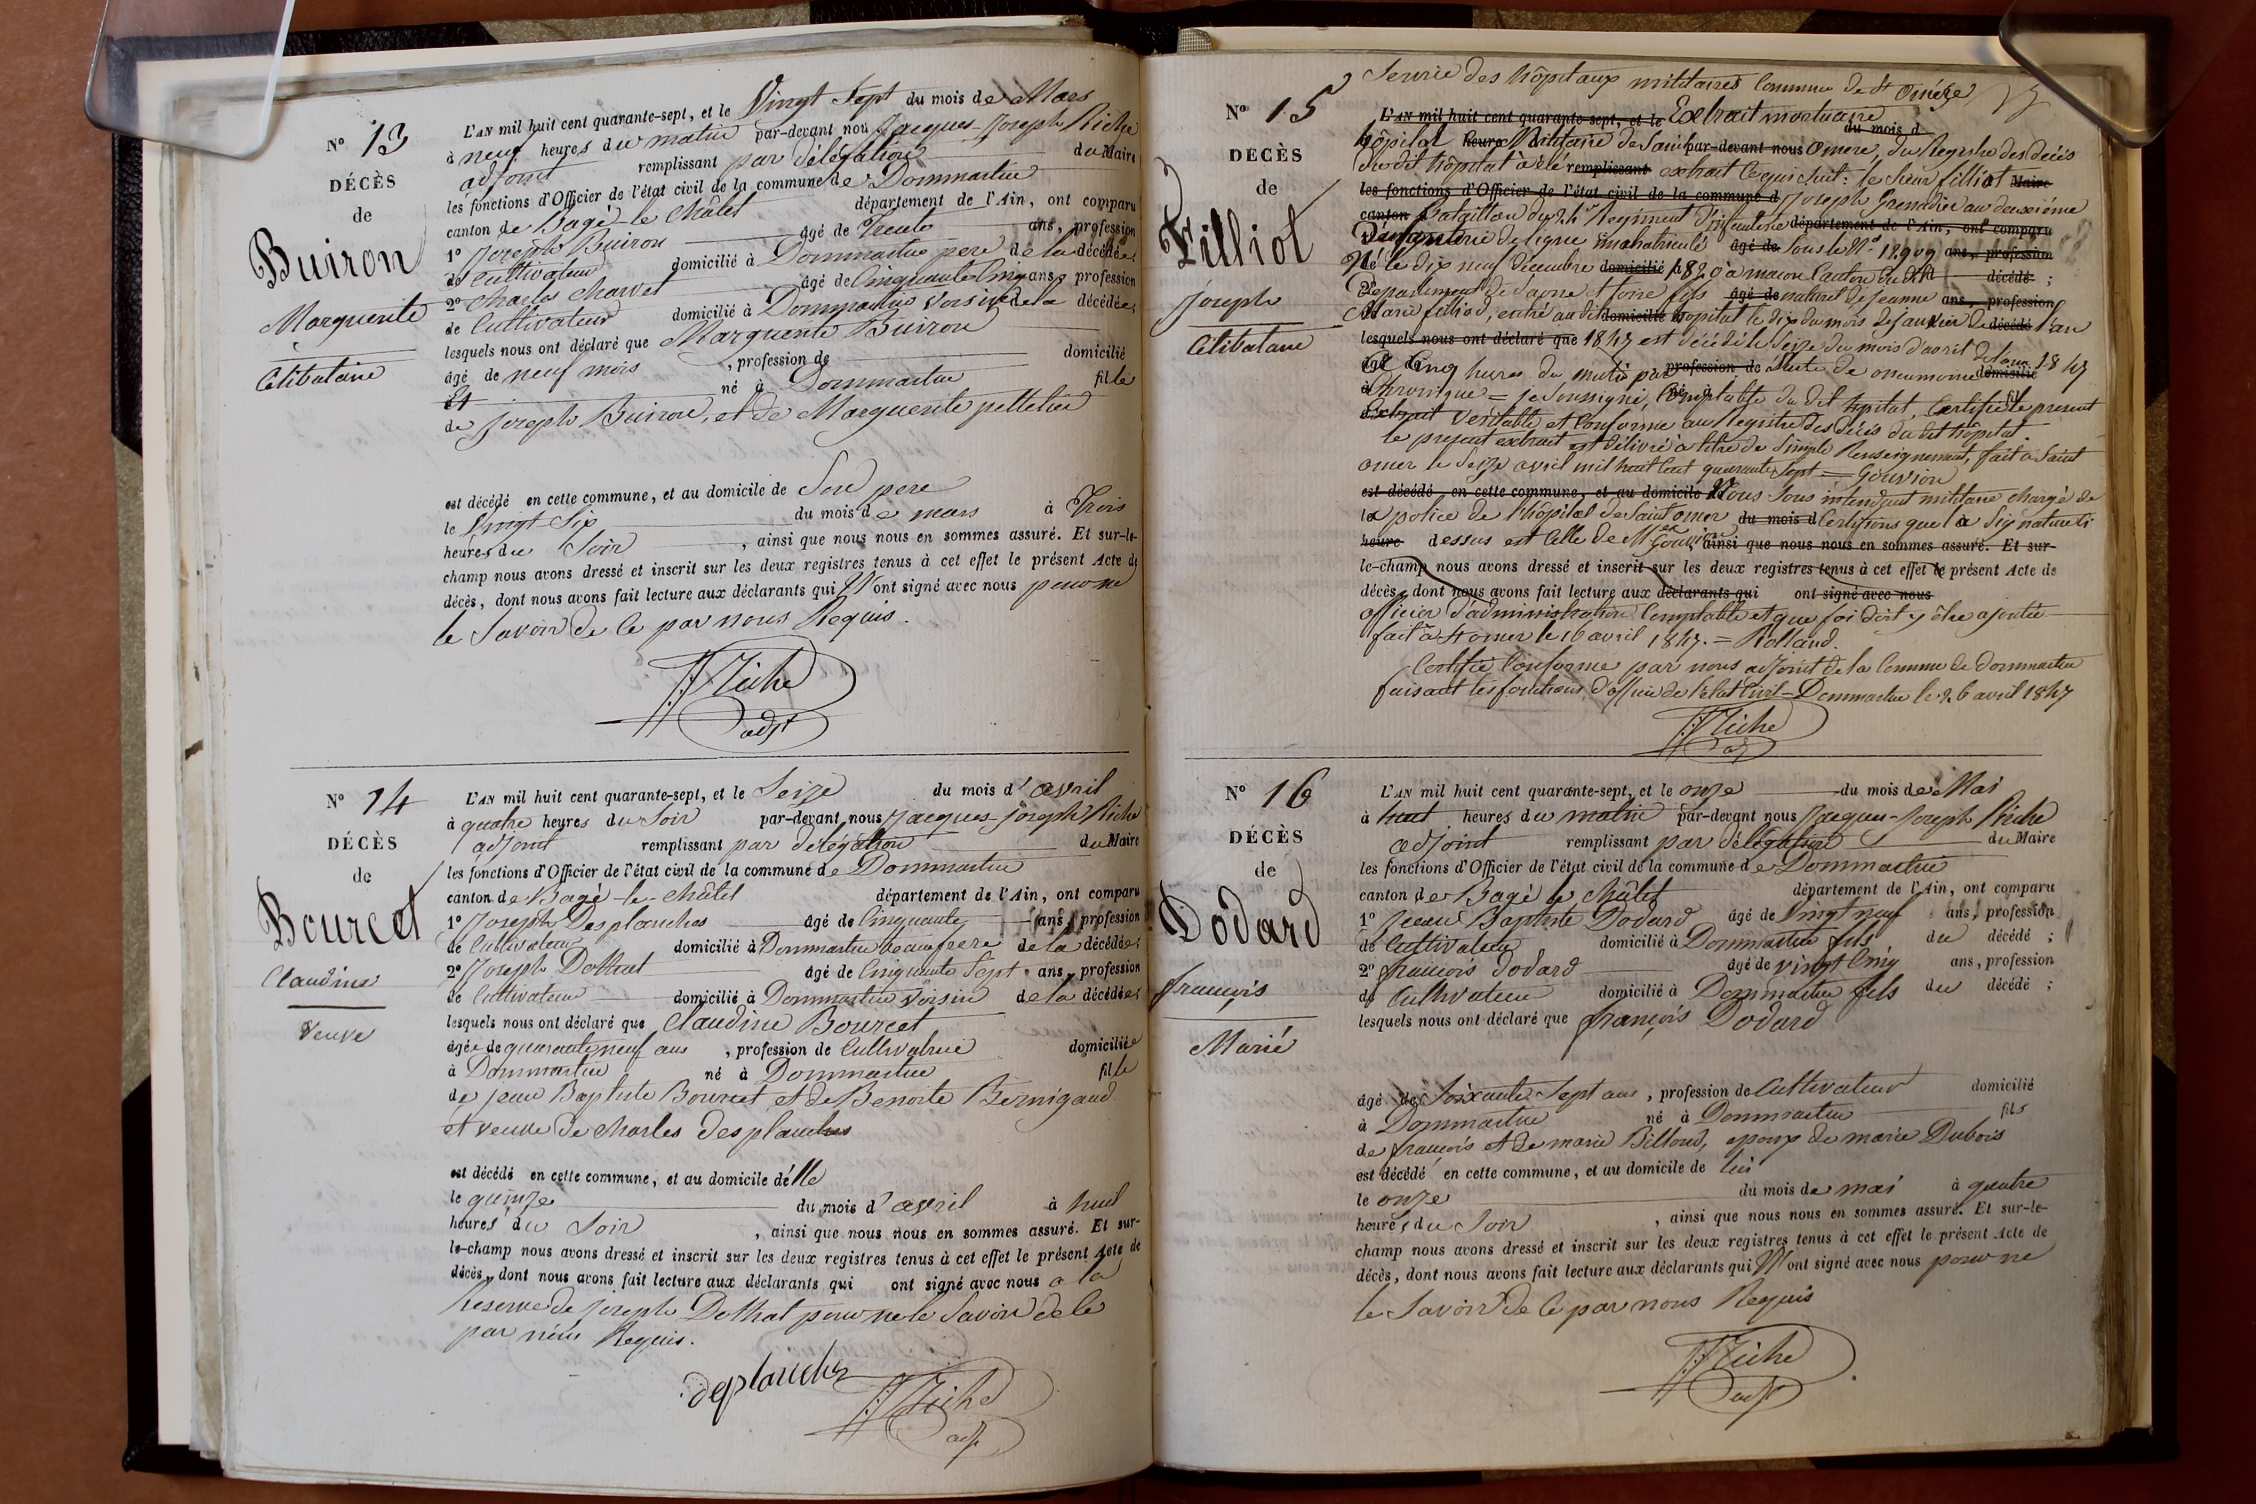 N° 13
DÉCÈS
de
Buiron
Marguerite
Célibataire
L'AN mil huit cent quarante-sept, et le Vingt Sept du mois de Mars
à neuf heures du matin par-devant nous Jacques-Joseph Riche
adjoint remplissant par délégation du Maire
les fonctions d'Officier de l'état civil de la commune de Dommartin
canton de Bagé-le-Châtel département de l'Ain, ont comparu
1° Joseph Buiron âgé de Trente ans, profession
de Cultivateur domicilié à Dommartin pere de la décédée;
2° Charles Charvet âgé de Cinquante Cinq ans, profession
de Cultivateur domicilié à Dommartin Voisin de la décédée;
lesquels nous ont déclaré que Marguerite Buiron
âgé de neuf mois , profession de domicilié
né à Dommartin fille
de Joseph Buiron, et de Marguerite pelletier
est décédé en cette commune, et au domicile de Son pere
le Vingt Six du mois de mars à Trois
heures du Soir , ainsi que nous nous en sommes assuré. Et sur-le-
champ nous avons dressé et inscrit sur les deux registres tenus à cet effet le présent Acte de
décès, dont nous avons fait lecture aux déclarants qui N'ont signé avec nous pour ne
le Savoir de Ce par nous Requis.
JJRiche
adjt
N° 14
DÉCÈS
de
Bourcet
Claudine
Veuve
L'AN mil huit cent quarante-sept, et le Seize du mois d'avril
à quatre heures du Soir par-devant nous Jacques-Joseph Riche
adjoint remplissant par délégation du Maire
les fonctions d'Officier de l'état civil de la commune de Dommartin
canton de Bagé-le-Châtel département de l'Ain, ont comparu
1° Joseph Desplanches âgé de Cinquante ans, profession
de Cultivateur domicilié à Dommartin beaufrere de la décédée;
2° Joseph Dothal âgé de Cinquante Sept ans, profession
de Cultivateur domicilié à Dommartin Voisin de la décédée;
lesquels nous ont déclaré que Claudine Bourcet
âgée de quarante neuf ans , profession de Cultivatrice domiciliée
à Dommartin né à Dommartin fille
de jean Baptiste Bourcet et de Benoite Bernigaud
et veuve de Charles Desplanches
est décédé en cette commune, et au domicile d'elle
le quinze du mois d'avril à huit
heures du Soir , ainsi que nous nous en sommes assuré. Et sur-
le-champ nous avons dressé et inscrit sur les deux registres tenus à cet effet le présent Acte de
décès, dont nous avons fait lecture aux déclarants qui ont signé avec nous a la
Reserve de Joseph Dothal pour ne le Savoir de Ce
par nous Requis.
deplanches
JJRiche
adjt
Service des hôpitaux militaires Commune de St Omére
N° 15
DÉCÈS
de
Filliot
Joseph
Célibataire
L'AN mil huit cent quarante-sept, et le Extrait mortuaire
du mois d
hôpital heure Militaire de Saint par-devant nous Omere, du Registre des décès
du dit hôpital à été remplissant extrait Ce qui suit: le Sieur filliot Maire
les fonctions d'Officier de l'état civil de la commune d Joseph Grenadier au deuxième
canton Bataillon du Regiment d'infenterie département de l'Ain, ont comparu
D'enfanterie de ligne immatriculé âgé de Sous le N° 12.909 ans, profession
Né le dix neuf Décembre domicilié à macon Canton du dit décédé ;
Departement de Saone et Loire fils âgé de naturel de jeanne ans, profession
Marie filliod, entré au dit domicilié à hopital le dix du mois de janvier de décédé l'an
lesquels nous ont déclaré que 1847 est décédé le Seize du mois d'avril de l'an 1847
âgé de Cinq heures du matin par profession de Suite de pneumonie domicilié
à Chronique = je Soussigné, né à Comptable du dit hopital, Certifie le présent
Extrait Véritable et Conforme au Registre des décès du dit hôpital.
le présent extrait est délivré à titre de Simple Renseignement, fait à Saint
omer le Seize avril mil huit Cent quarante Sept = Gouvion
est décédé, en cette commune, et au domicile de Nous Sous intendant militaire chargé de
la police de l'hôpital de Saint omer du mois d Certifions que la Signature Ci
heure dessus est Celle de Mr Gouvion ainsi que nous nous en sommes assuré. Et sur-
le-champ nous avons dressé et inscrit sur les deux registres tenus à cet effet le présent Acte de
décès, dont nous avons fait lecture aux déclarants qui ont signé avec nous
officier d'administration Comptable et que foi doit y être ajoutée
fait à St omer le 16 avril 1847. = Rolland.
Certifié Conforme par nous adjoint de la Commune de Dommartin
faisant les fonctions d'officier de l'état Civil - Dommartin le 26 avril 1847
JJRiche
adj
N° 16
DÉCÈS
de
Dodard
françois
Marié
L'AN mil huit cent quarante-sept, et le onze du mois de Mai
à huit heures du matin par-devant nous Jacques-Joseph Riche
adjoint remplissant par délégation du Maire
les fonctions d'Officier de l'état civil de la commune de Dommartin
canton de Bagé le Châtel département de l'Ain, ont comparu
1° Jean Baptiste Dodard âgé de Vingt neuf ans, profession
de Cultivateur domicilié à Dommartin fils du décédé ;
2° françois Dodard âgé de vingt Cinq ans, profession
de Cultivateur domicilié à Dommartin fils du décédé ;
lesquels nous ont déclaré que françois Dodard
âgé de Soixante Sept ans , profession de Cultivateur domicilié
à Dommartin né à Dommartin fils
de françois et de marie Billoud, epoux de marie Dubois
est décédé en cette commune, et au domicile de lui
le onze du mois de mai à quatre
heures du Soir , ainsi que nous nous en sommes assuré. Et sur-le-
champ nous avons dressé et inscrit sur les deux registres tenus à cet effet le présent Acte de
décès, dont nous avons fait lecture aux déclarants qui N'ont signé avec nous pour ne
le Savoir de Ce par nous Requis
JJRiche
adjt